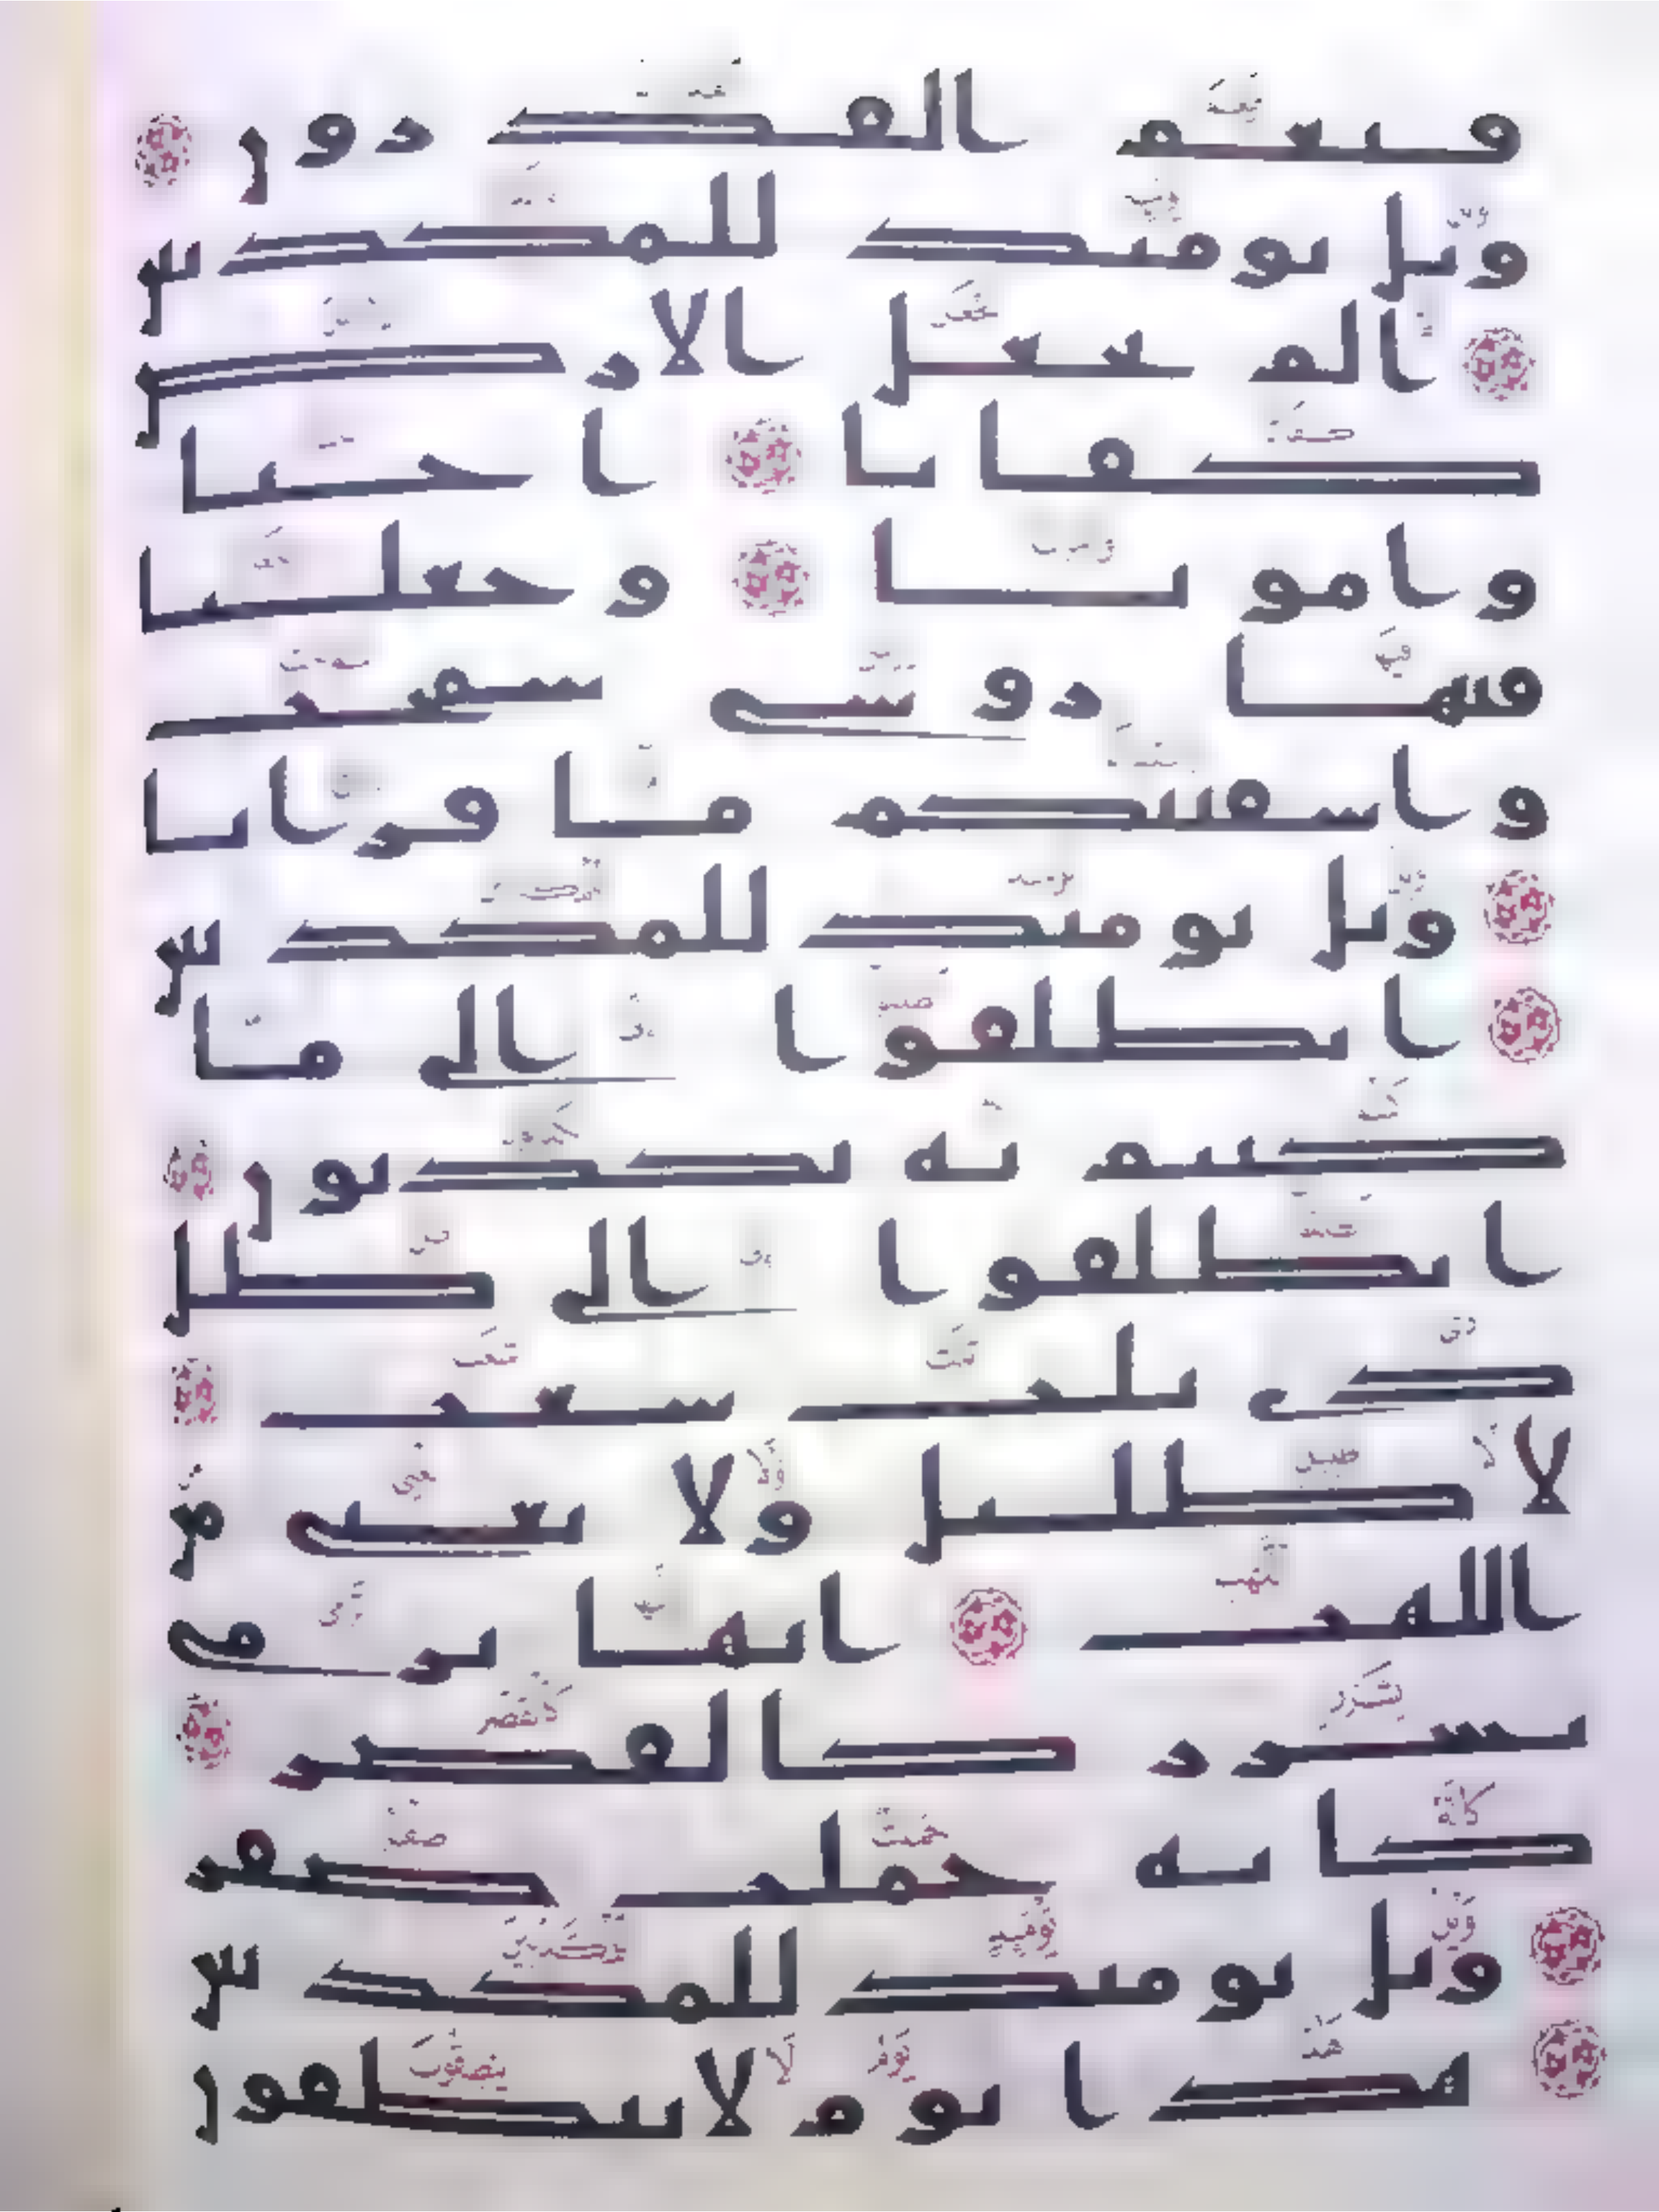 فنعم القدرون
ويل يومئذ للمكذبين
ألم نجعل الأرض
كفاتا أحيا
وأموتا وجعلنا
فيها روسي شمخت
وأسقينكم ما فراتا
ويل يومئذ للمكذبين
انطلقوا إلى ما
كنتم به تكذبون
انطلقوا إلى ظل
ذي ثلث شعب
لا ظليل ولا يغني من
اللهب إنها ترمي
بشرر كالقصر
كأنه جملت صفر
ويل يومئذ للمكذبين
هذا يوم لا ينطقون